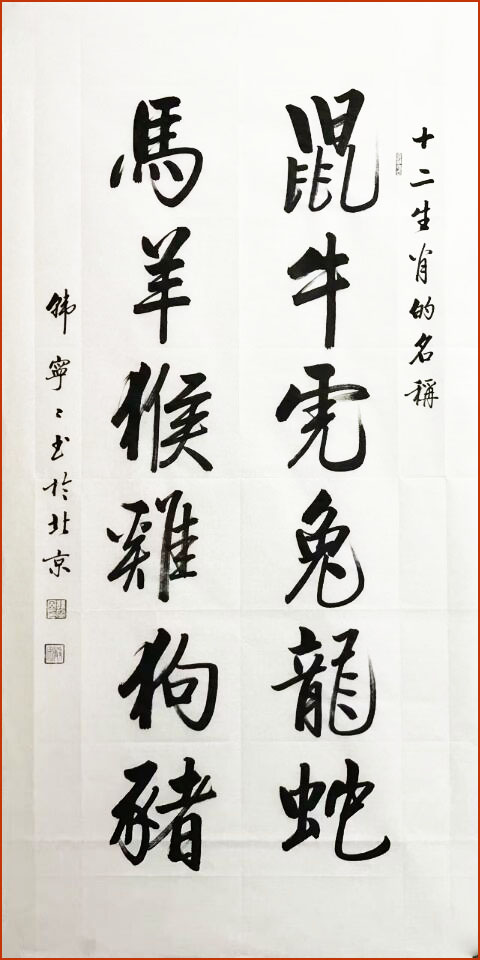 十二生肖的名稱
鼠牛虎兔龍蛇
馬羊猴雞狗豬
韩寧〻书於北京